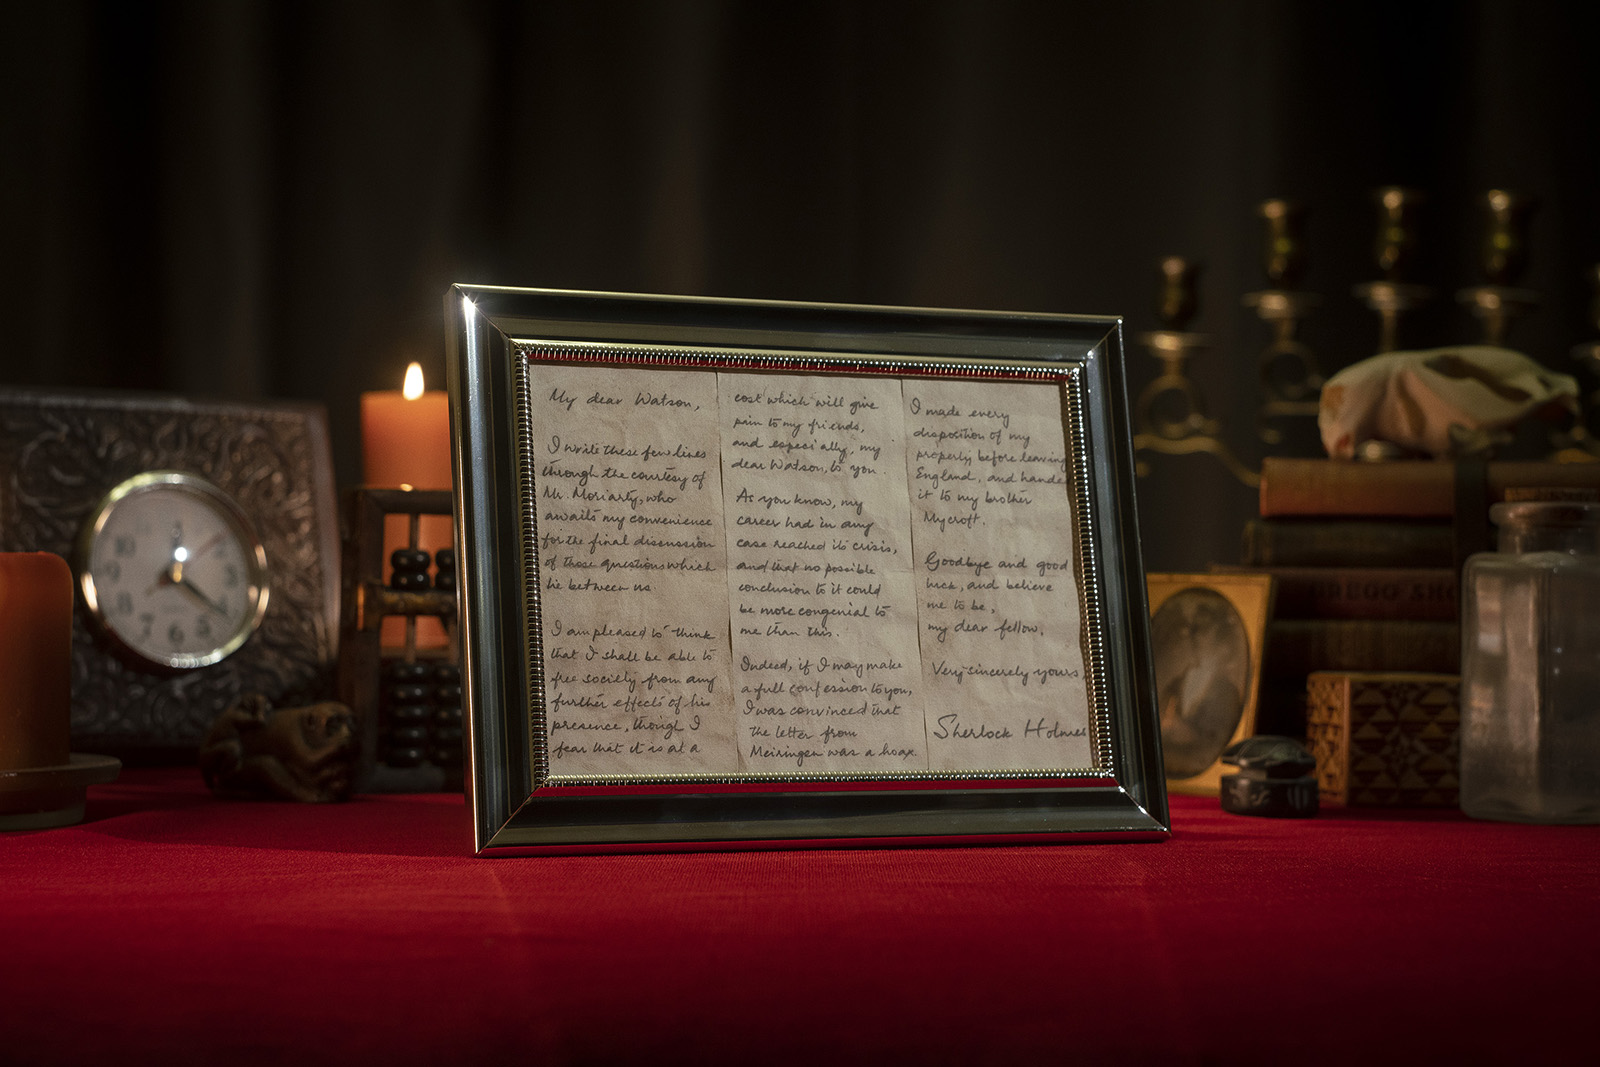 My dear Watson,
I write these few lines
through the courtesy of
Mr. Moriarty, who
awaits my convenience
for the final discussion
of those questions which
lie between us.
I am pleased to think
that I shall be able to
free society from any
further effects of his
presence, though I
fear that it is at a
cost which will give
pain to my friends,
and especially, my
dear Watson, to you.
As you know, my
career had in any
case reached its crisis,
and that no possible
conclusion to it could
be more congenial to
me than this.
Indeed, if I may make
a full confession to you,
I was convinced that
the letter from
Meiringen was a hoax.
I made every
disposition of my
property before leaving
England, and hande
it to my brother
Mycroft.
Goodbye and good
luck, and believe
me to be,
my dear fellow,
Very sincerely yours,
Sherlock Holmes
12
3
4
5
6
7
8
10
GREGG SHO